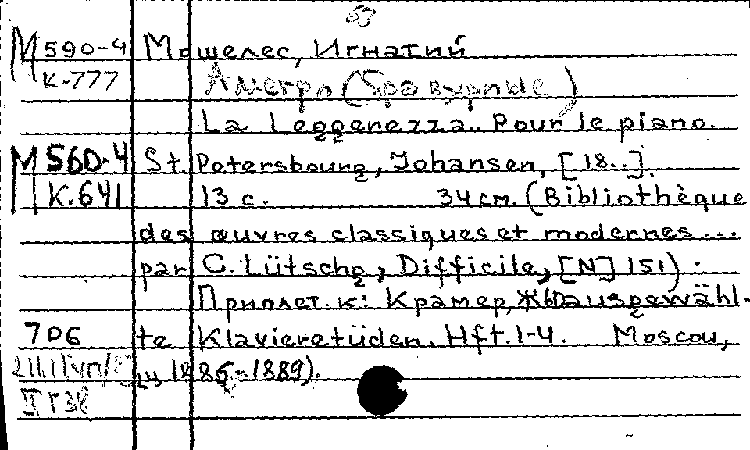 М 590-4 Мошелес, Игнатий
К-777 (Бравурные)
La Leggerezza.. Pour le piano.
М 560-4 St. Petersbourg, Johansen, [18..].
К.641 13 с. 34 см. (Bibliothèque
des œuvres classiques et modernes ...
par C. Lütschg, Difficile, [N] 151).
Приплет. к: Крамер, Ausgewähl-
706 te Klavieretüden. Hft. 1-4. Moscou,
1886-1889).